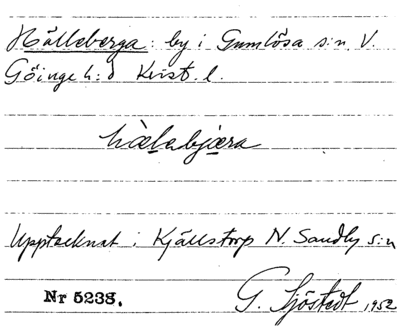 Hälleberga: by i Gumlösa s:n V.
Göinge h:d Krist. l.
hælebjæra
Upptecknat i Kjällstorp N. Sandby s:n
Nr 5238. G. Sjöstedt 1952